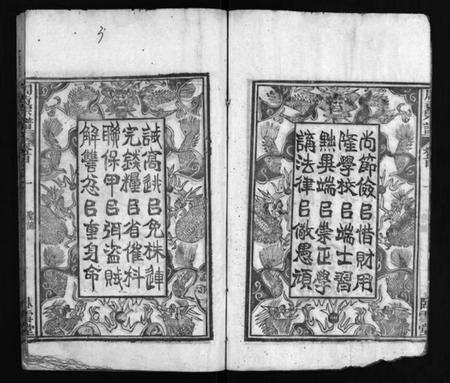 尚節儉㠯惜財用
隆學校㠯端士習
黜異端㠯崇正學
講法律㠯儆愚頑
誡窩逃㠯免株連
完錢糧㠯省催科
聯保甲㠯弭盜賊
解讐忿㠯重身命